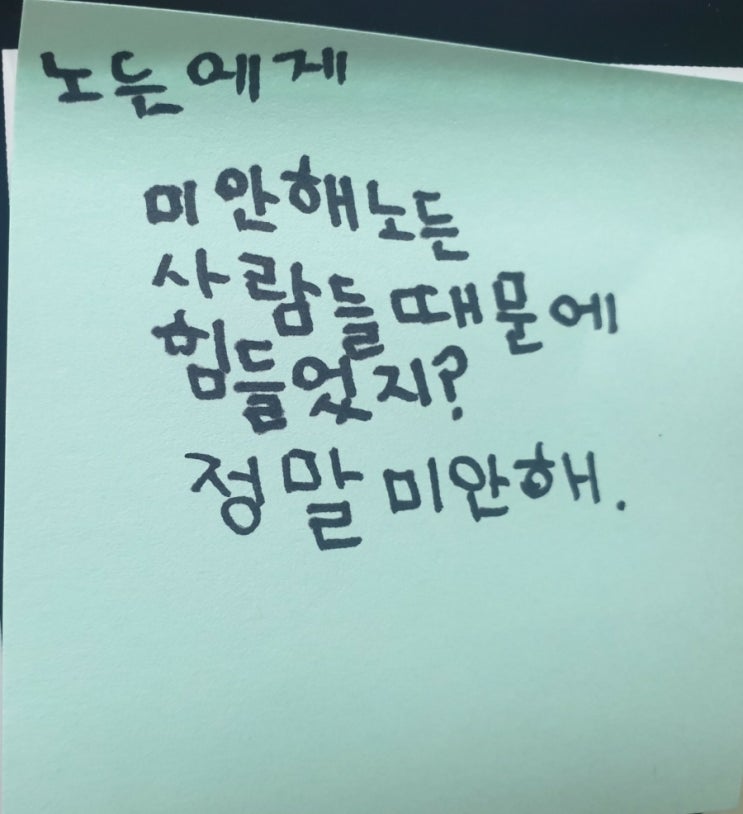 노든에제
미안해노든
사람들때문에
힘들었지?
정말미안해.